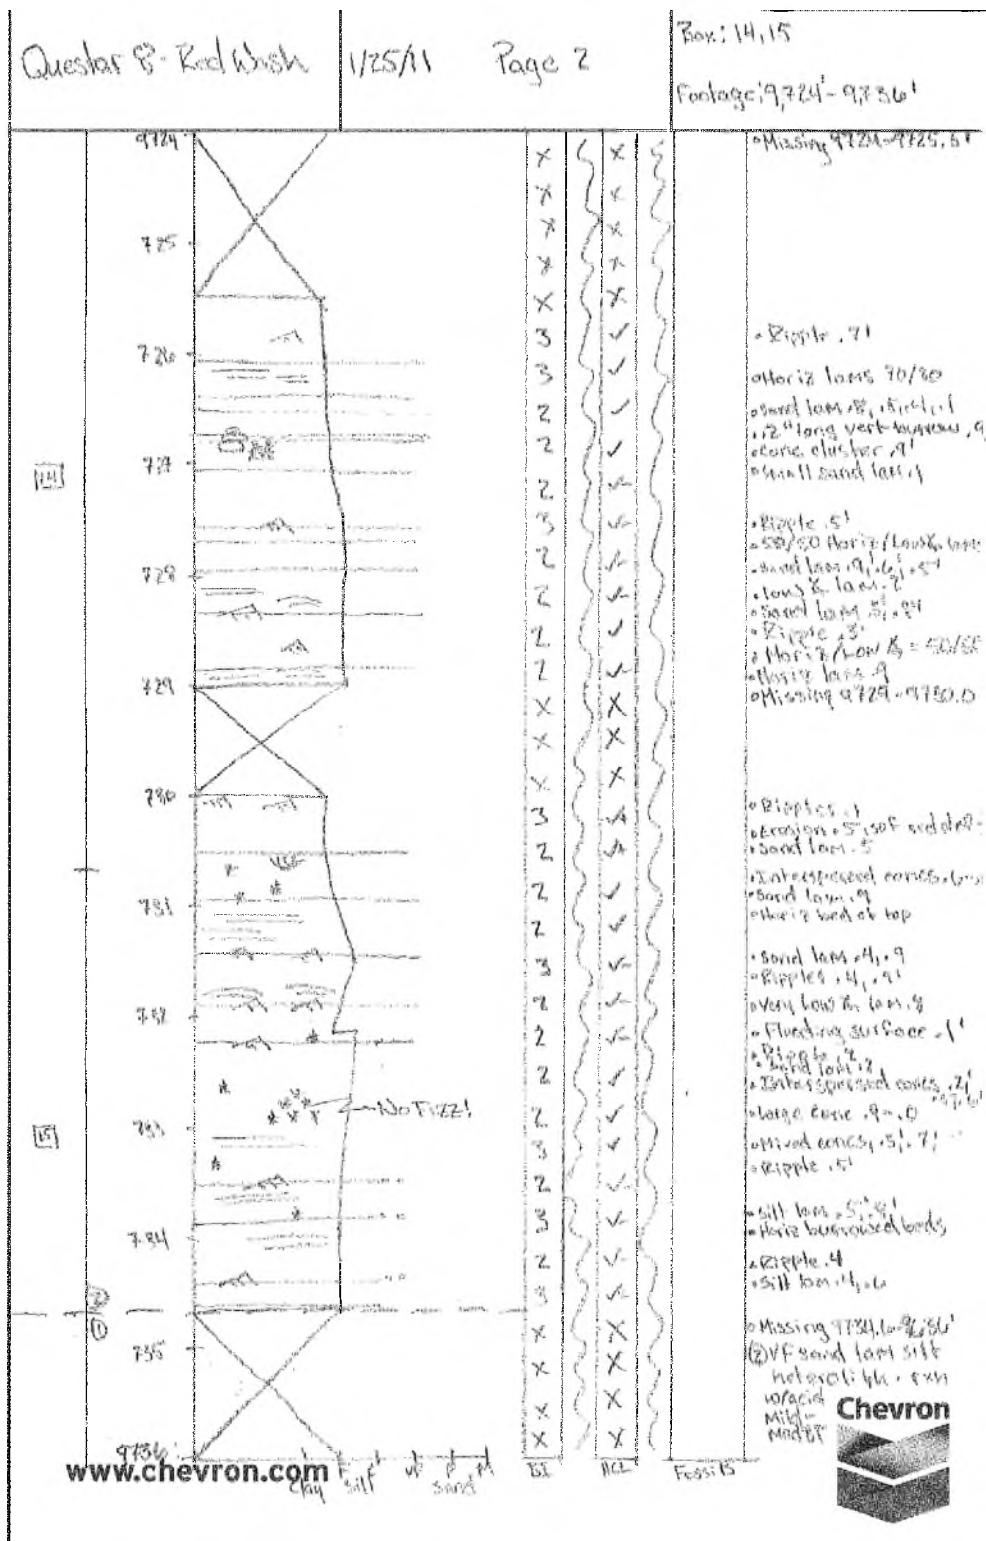 Questar 8-Red Wash
1/25/11
Page 2
Box: 14,15
Footage: 9,724'-9,736'
9724
725
726
727
728
729
730
731
732
733
734
735
9736'
14
15
②
①
X
X
X
X
X
3
3
2
2
2
3
2
2
2
2
X
X
X
3
2
2
2
3
2
2
2
2
3
2
3
2
3
X
X
X
X
No FIZZ!
•Missing 9724-9725.5'
•Ripple .9'
•Horiz lams
•Sand lam
•.2" long vert burrow
•conc cluster .9'
•small sand lam .1
•Ripple .5'
•50/50 Horiz/Low
•Sand lam .9', .6', .5'
•Low & lam .2'
•Sand lam
•Ripple .3'
•Horiz/Low & = 50/50
•Horiz lam .9
•Missing 9729-9730.0
•Ripples .1
•Erosion .5, sof sed def
•Sand lam .5
•Interspersed concs
•Sand lam .9
•Horiz bed at top
•Sand lams .4, .9
•Ripples .4, .9'
•Very Low & lam .8
•Flooding surface .1'
•Ripple .2
•Sand lam .2
•Interspersed concs .2'
•Large conc .9-.0
•Mixed concs, .5', .7'
•Ripple .5'
•Silt lam
•Horiz burrowed beds
•Ripple .4
•Silt lam .4, .6
•Missing 9734.6-9636'
② VF sand lam silt
heterolithic
w/acid
Mild-
Mod BI
Chevron
www.chevron.com
Clay
Silt
VF
F
M
Sand
BI
HCL
Fossils